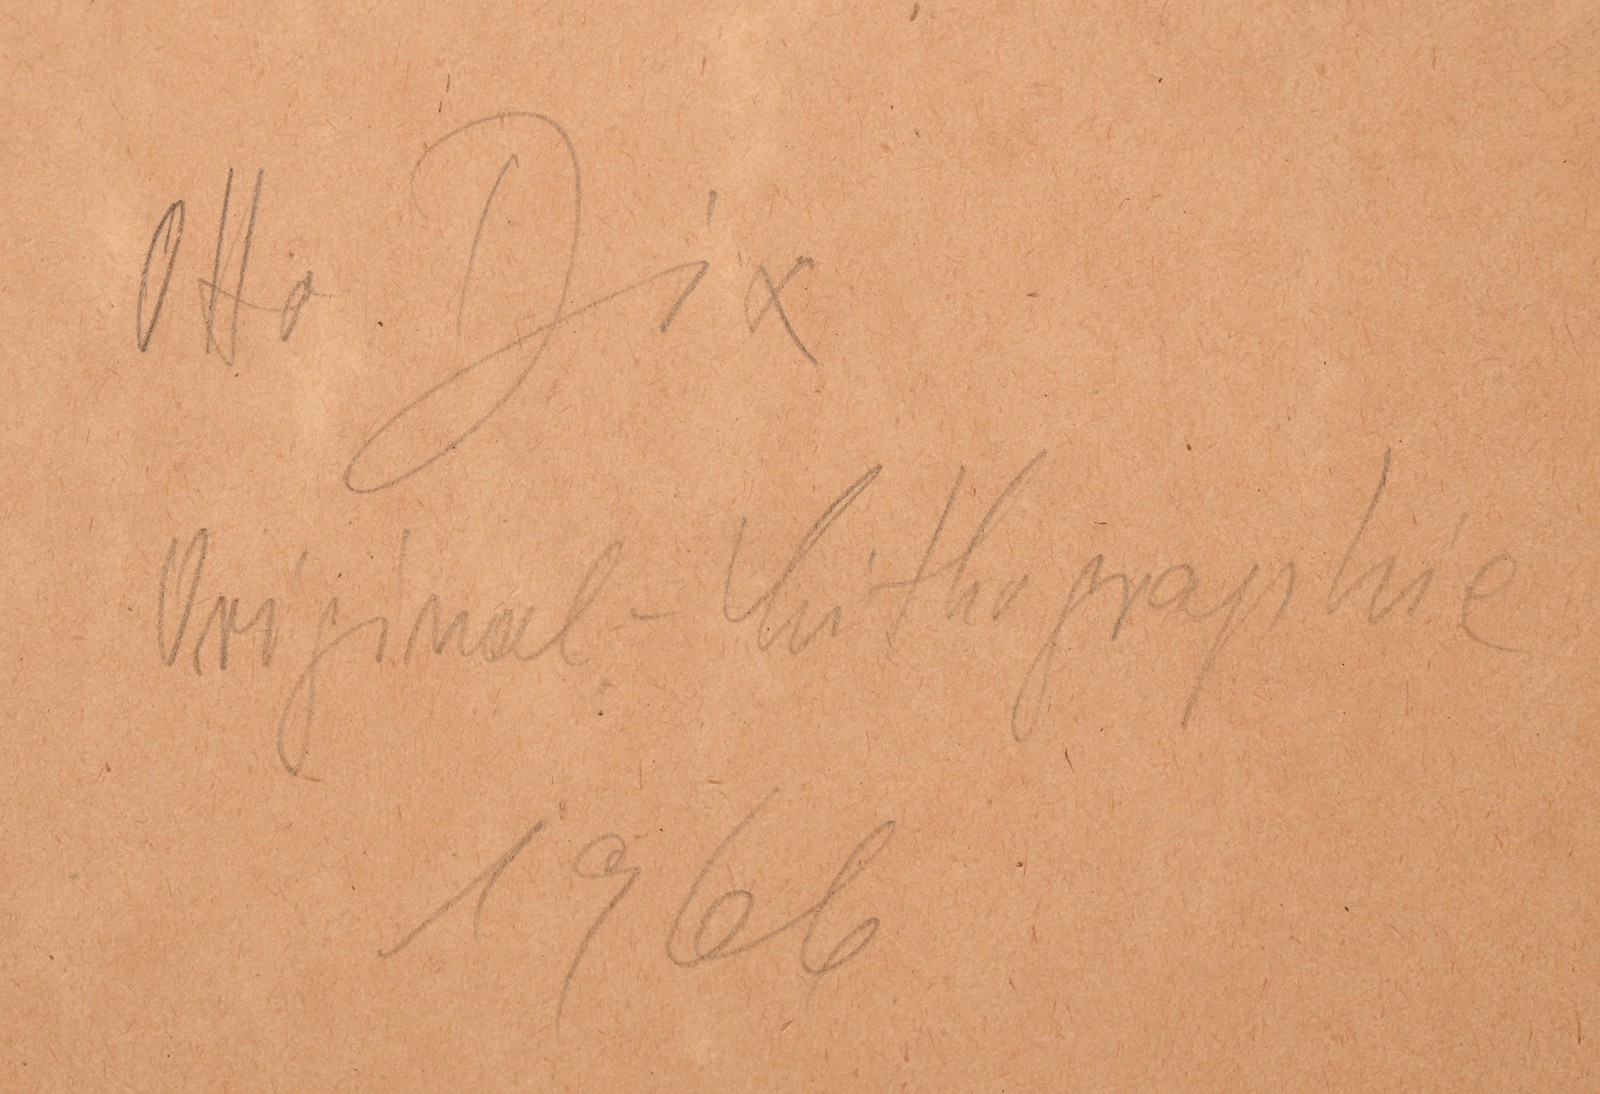 Otto Dix
Original-Lithographie
1966